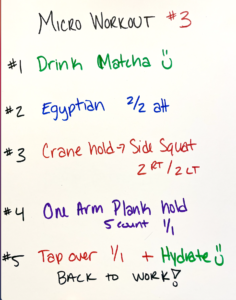 MICRO WORKOUT #3
#1 Drink Matcha
#2 Egyptian 2/2 alt
#3 Crane hold → Side Squat
2 RT / 2 LT
#4 One Arm Plank hold
5 count 1/1
#5 Tap over 1/1 + Hydrate
BACK TO WORK!